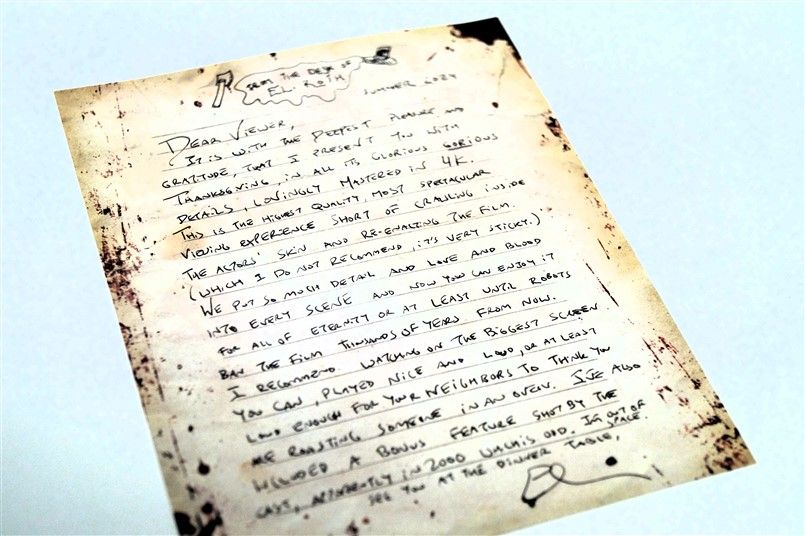 FROM THE DESK OF
ELI ROTH
SUMMER 2024
DEAR VIEWER,
IT IS WITH THE DEEPEST PLEASURE AND
GRATITUDE, THAT I PRESENT YOU WITH
THANKSGIVING, IN ALL ITS GLORIOUS GORIOUS
DETAILS, LOVINGLY MASTERED IN 4K.
THIS IS THE HIGHEST QUALITY, MOST SPECTACULAR
VIEWING EXPERIENCE SHORT OF CRAWLING INSIDE
THE ACTORS' SKIN AND RE-ENACTING THE FILM.
(WHICH I DO NOT RECOMMEND, IT'S VERY STICKY.)
WE PUT SO MUCH DETAIL AND LOVE AND BLOOD
INTO EVERY SCENE AND NOW YOU CAN ENJOY IT
FOR ALL OF ETERNITY OR AT LEAST UNTIL ROBOTS
BAN THE FILM THOUSANDS OF YEARS FROM NOW.
I RECOMMEND WATCHING ON THE BIGGEST SCREEN
YOU CAN, PLAYED NICE AND LOUD, OR AT LEAST
LOUD ENOUGH FOR YOUR NEIGHBORS TO THINK YOU
ARE ROASTING SOMEONE IN AN OVEN. I'VE ALSO
INCLUDED A BONUS FEATURE SHOT BY THE
CAST, APPARENTLY IN 2000 WHICH IS ODD. I'M OUT OF
SPACE.
SEE YOU AT THE DINNER TABLE,